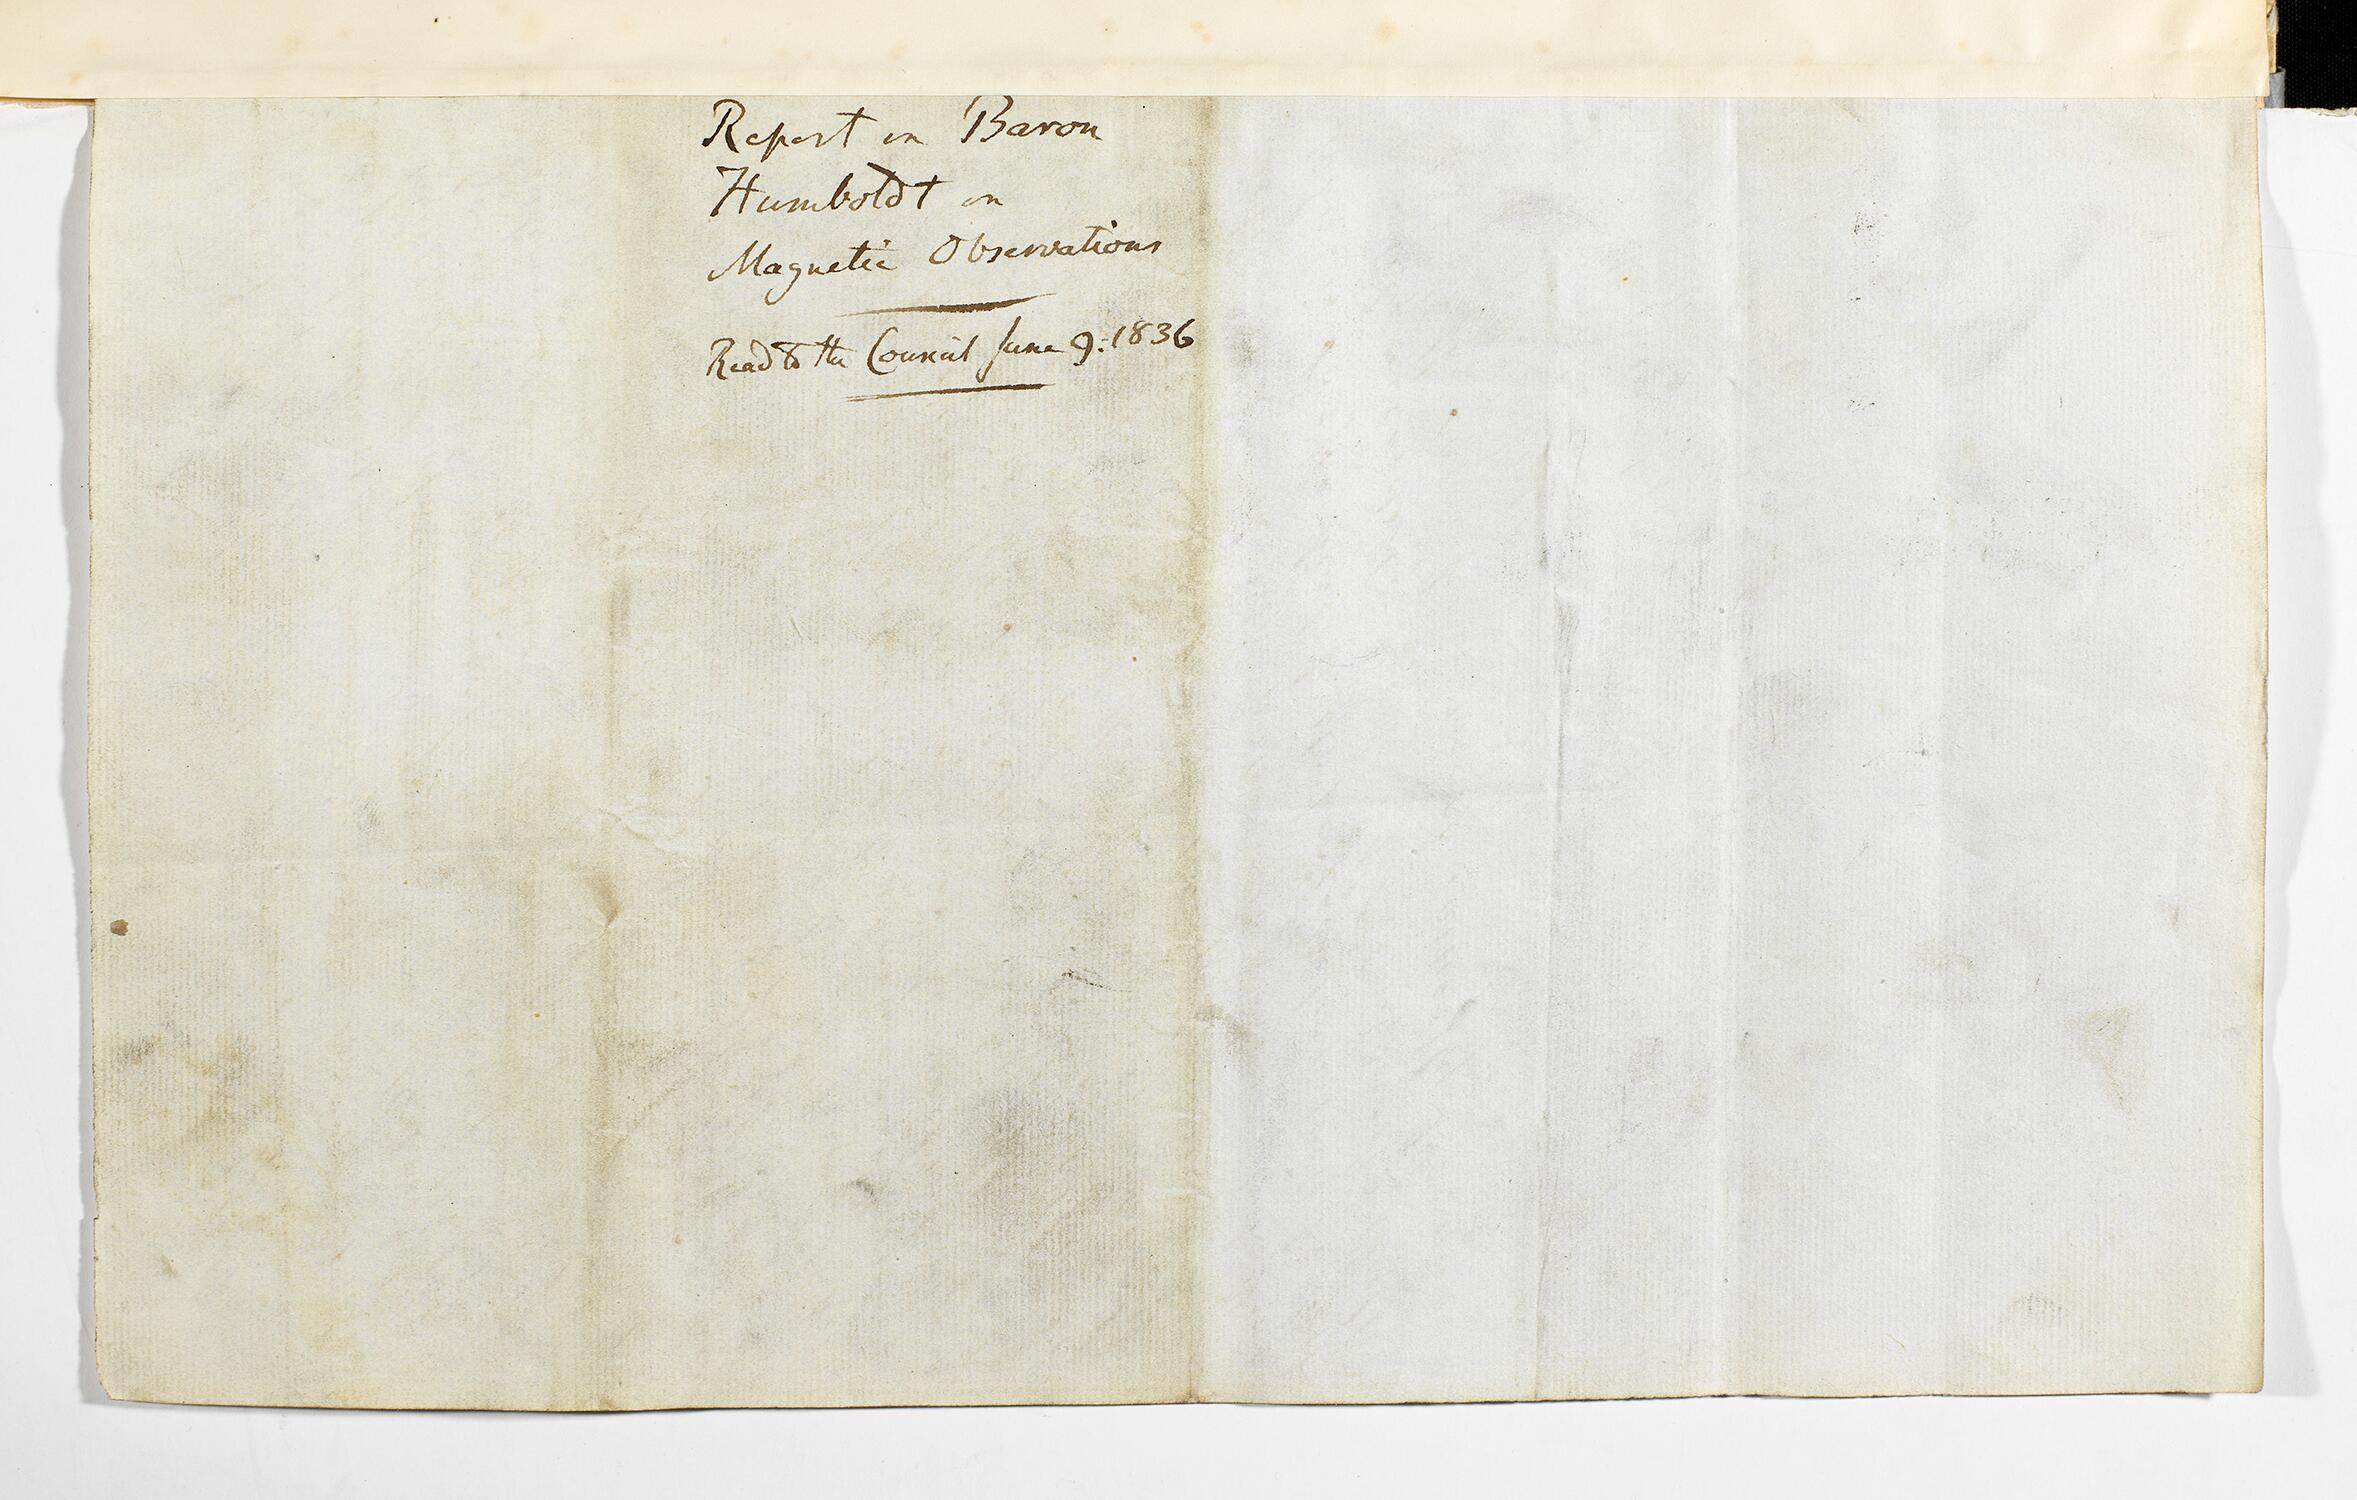 Report on Baron
Humboldt on
Magnetic Observations
Read to the Council June 9: 1836